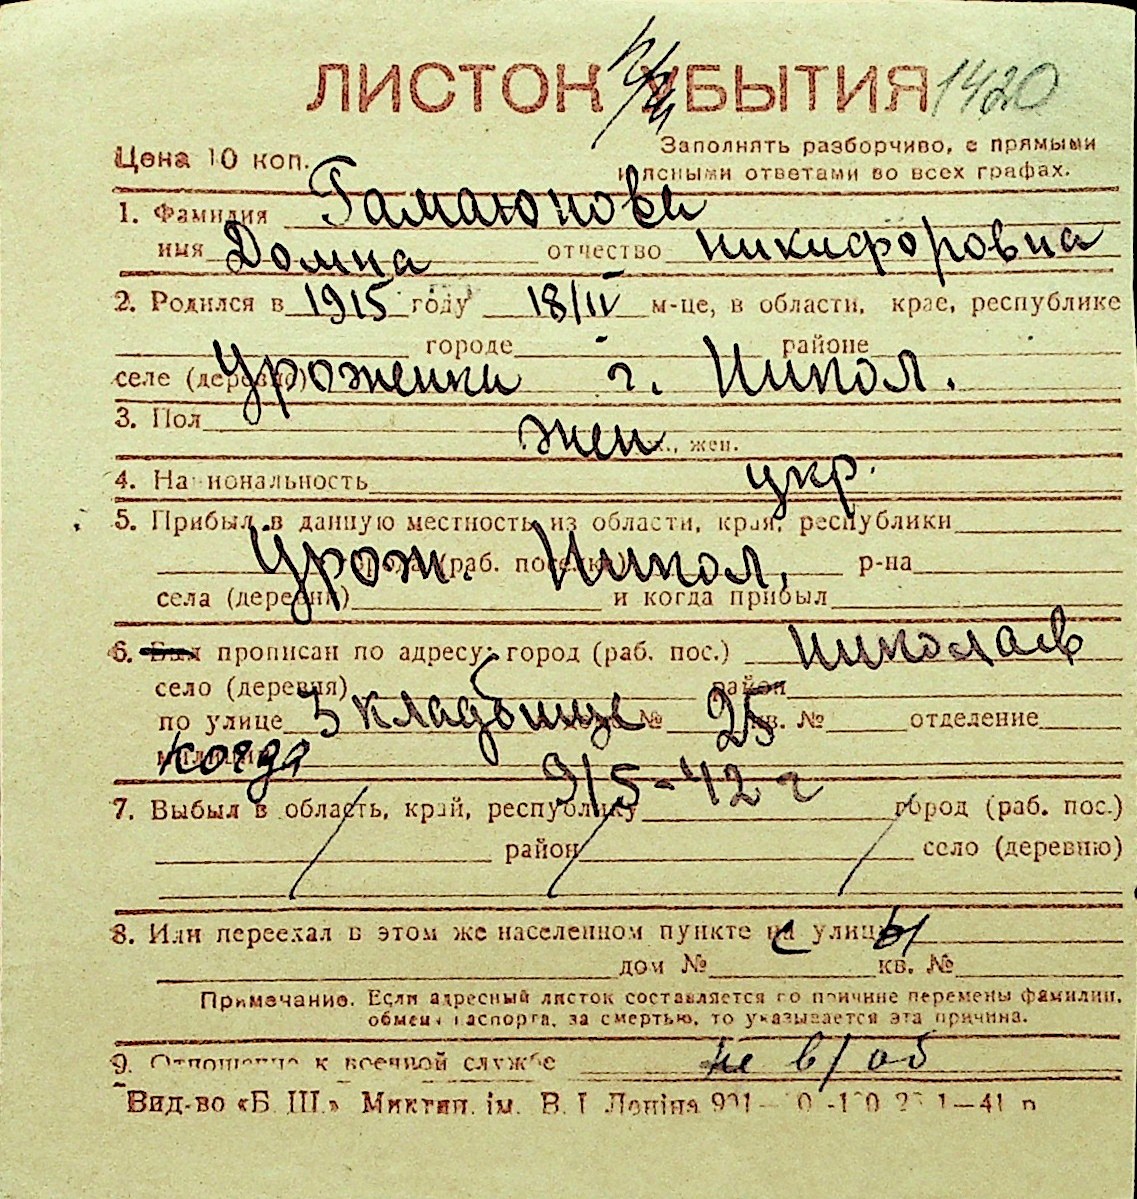 ЛИСТОК УБЫТИЯ 1420
Цена 10 коп.
Заполнять разборчиво, с прямыми
и ясными ответами во всех графах.
1. Фамилия Гамаюнова
имя Домна отчество Никифоровна
2. Родился в 1915 году 18/IV м-це, в области, крае, республике
городе районе
селе (деревне) Уроженка г. Никол.
3. Пол жен , жен.
4. Национальность укр.
5. Прибыл в данную местность из области, края, республики
Урож. (раб. поселка) Никол. р-на
села (деревни) и когда прибыл
6. Был прописан по адресу: город (раб. пос.) Николаев
село (деревня) район
по улице 3 кладбище № 25 кв. № отделение
милиции когда
9/5-42 г
7. Выбыл в область, край, республику город (раб. пос.)
район село (деревню)
8. Или переехал в этом же населенном пункте на улицу
дом № кв. №
Примечание. Если адресный листок составляется по причине перемены фамилии,
обмена паспорта, за смертью, то указывается эта причина.
9. Отношение к военной службе не в/об
Вид-во «Б. Ш.» Миктип. ім. В. І. Леніна